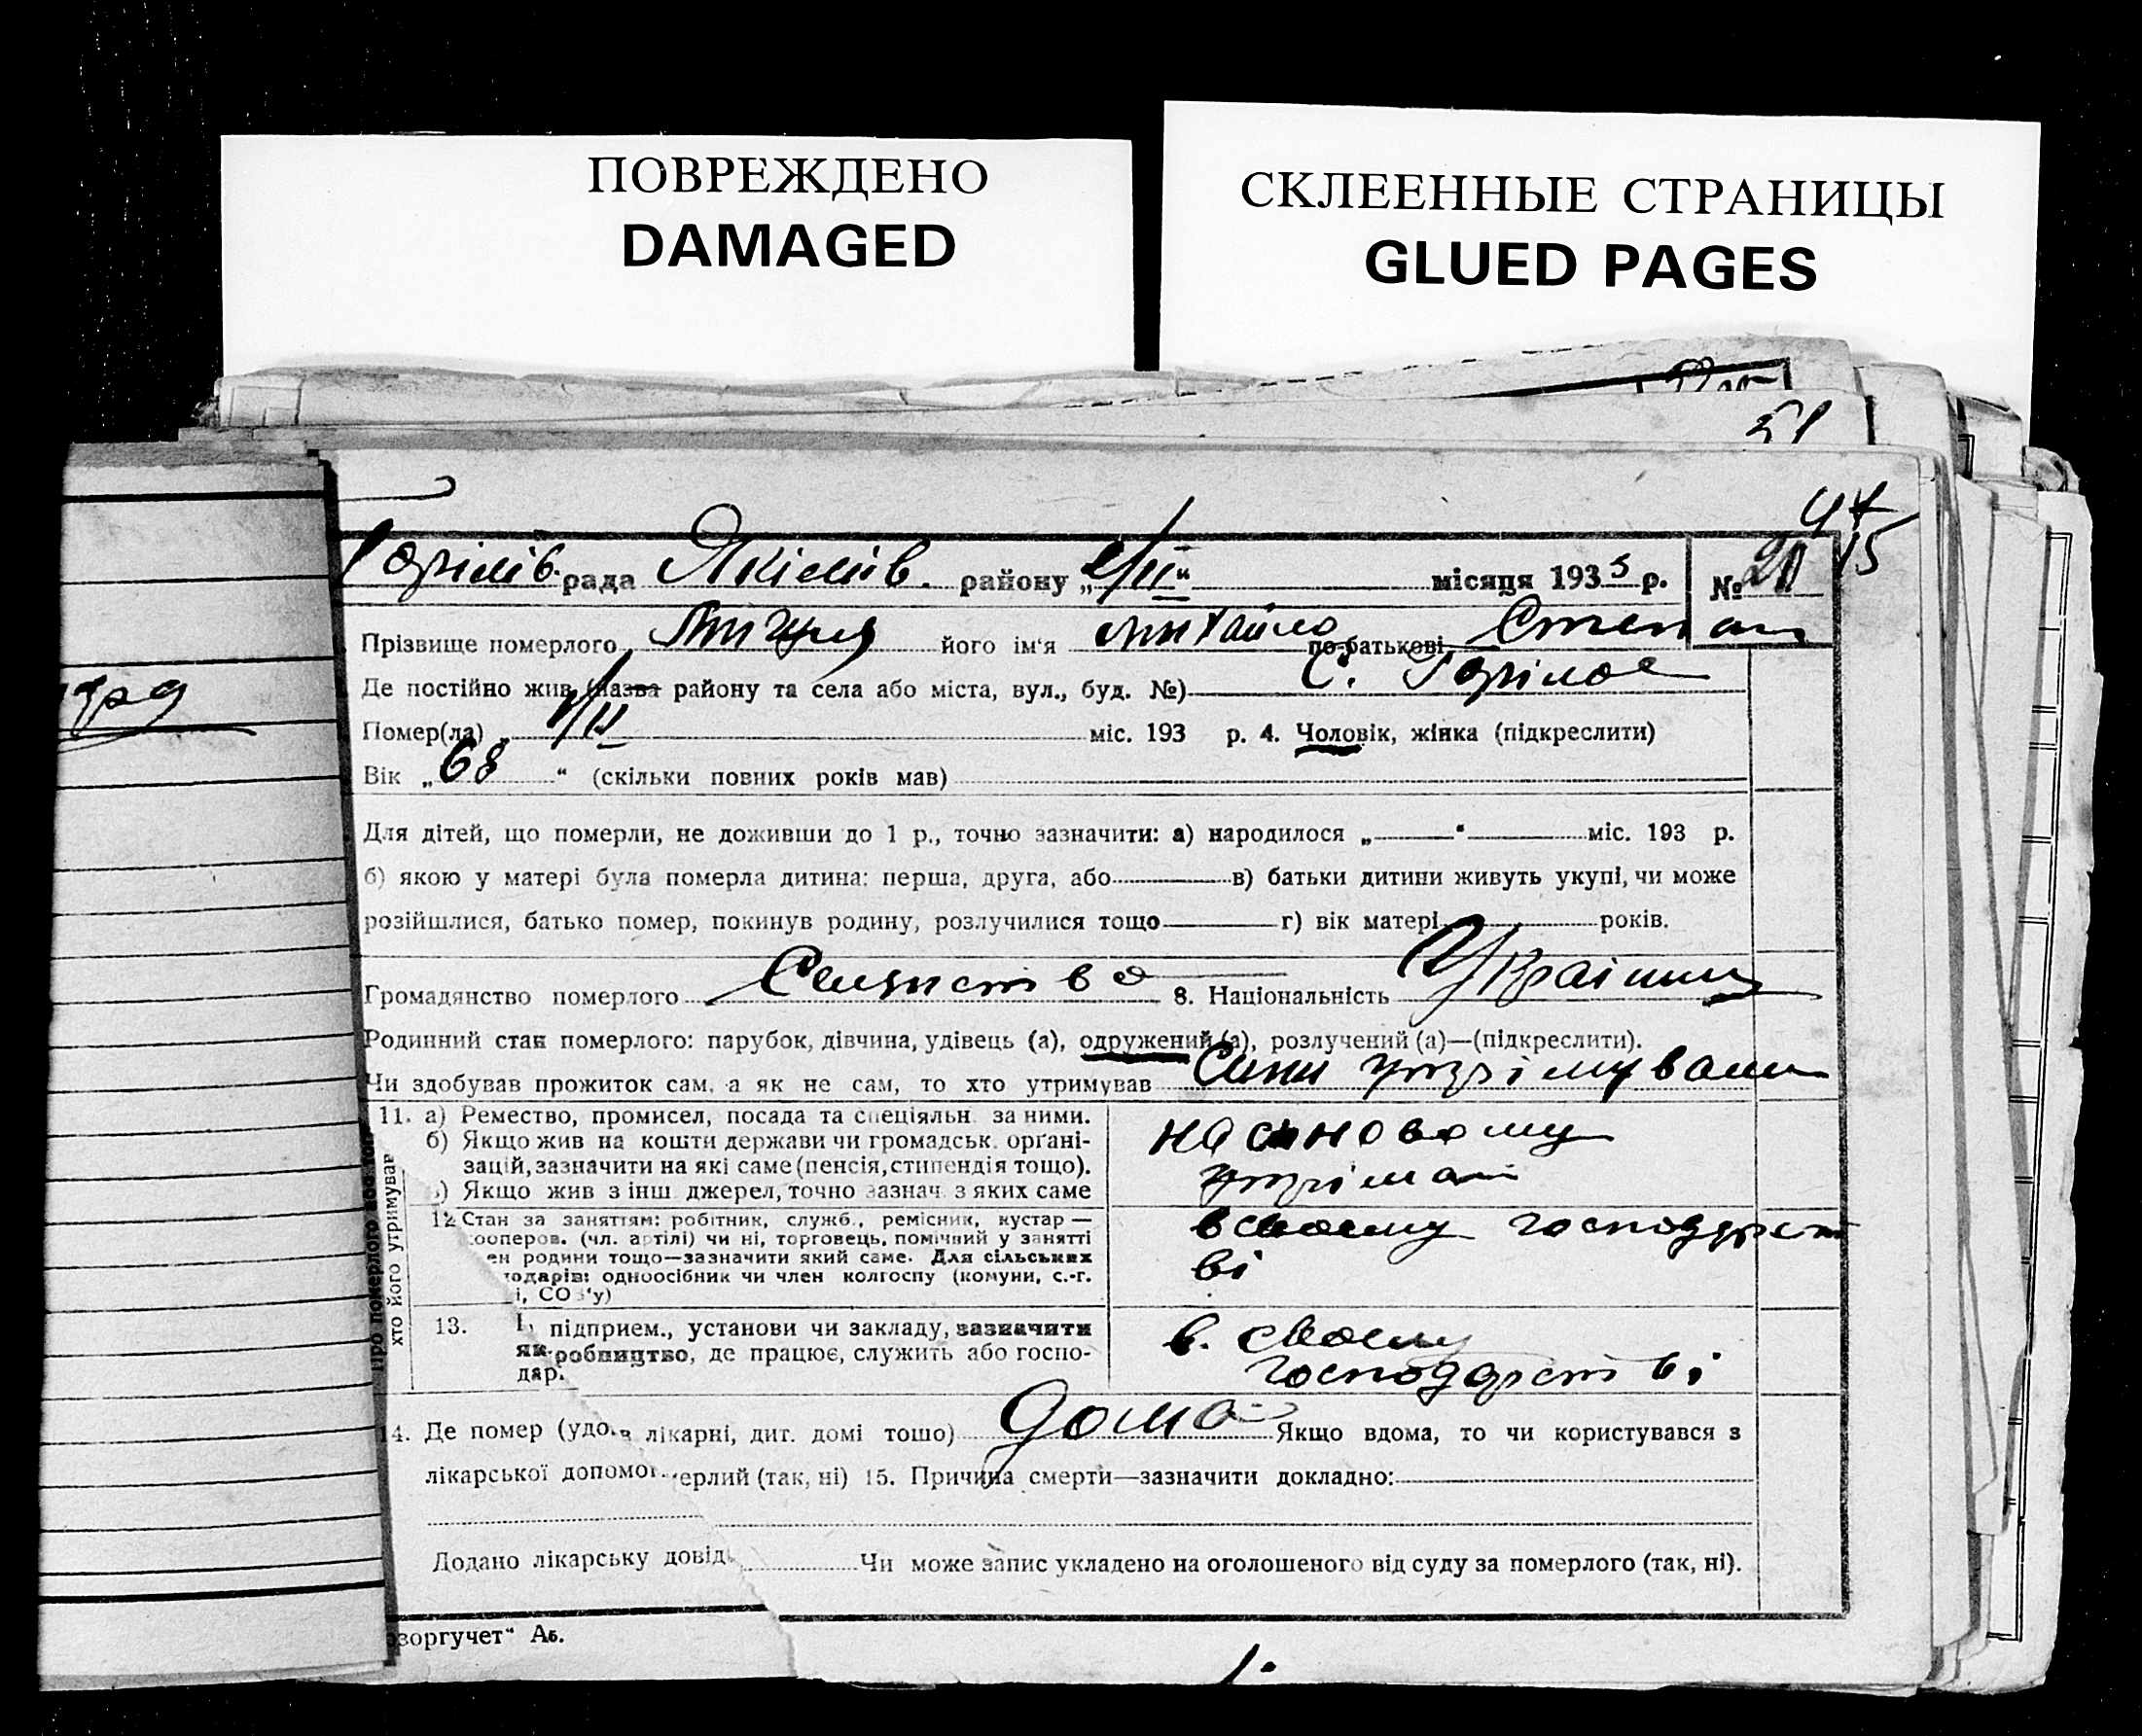 ПОВРЕЖДЕНО
DAMAGED
СКЛЕЕННЫЕ СТРАНИЦЫ
GLUED PAGES
51
94
15
Горілів. рада Якімів. району „2/II“ місяця 1933 р. № 20
Прізвище померлого його ім'я Михайло по-батькові Степан
Де постійно жив (назва району та села або міста, вул., буд. №) С. Горілое
Помер(ла) „ 1/II міс. 193 р. 4. Чоловік, жінка (підкреслити)
Вік „68“ (скільки повних років мав)
Для дітей, що померли, не доживши до 1 р., точно зазначити: а) народилося „ “ міс. 193 р.
б) якою у матері була померла дитина: перша, друга, або в) батьки дитини живуть укупі, чи може
розійшлися, батько помер, покинув родину, розлучилися тощо г) вік матері років.
Громадянство померлого 8. Національність Україниц
Родинний стан померлого: парубок, дівчина, удівець (а), одружений (а), розлучений (а)—(підкреслити).
Чи здобував прожиток сам, а як не сам, то хто утримував Сини утрімували
11. а) Ремество, промисел, посада та спеціяльн. за ними.
б) Якщо жив на кошти держави чи громадськ. орґані-
зацій, зазначити на які саме (пенсія, стипендія тощо).
) Якщо жив з інш. джерел, точно зазнач. з яких саме
на синовому
утрімані
12 Стан за заняттям: робітник, служб., ремісник, кустар —
ооперов. (чл. артілі) чи ні, торговець, помічний у занятті
ен родини тощо—зазначити який саме. Для сільських
подарів: одноосібник чи член колгоспу (комуни, с.-г.
і, СО 'у)
в своему господарст
ві
13. підприєм., установи чи закладу, зазначити
як робництво, де працює, служить або госпо-
дар.
в. своему
господарстві
Про померлого або того
хто його утримував
14. Де помер (удо лікарні, дит. домі тошо) дома Якщо вдома, то чи користувався з
лікарської допомог ерлий (так, ні) 15. Причина смерти—зазначити докладно:
Додано лікарську довід Чи може запис укладено на оголошеного від суду за померлого (так, ні).
зоргучет“ Аб.